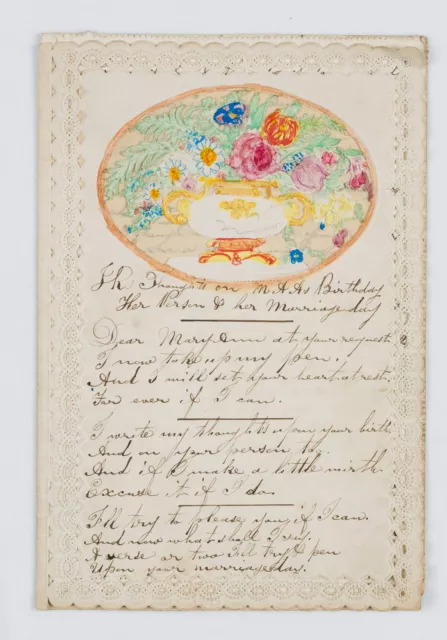 Thoughts on M A As Birthday
Her Person & her Marriage day
Dear Mary Ann at your request
I now take up my pen,
And I will set your heart at rest.
For ever if I can.
I write my thoughts upon your birth
And on your person to.
And if I make a little mirth
Excuse it if I do.
I'll try to please you if I can.
And now what shall I say.
A verse or two I'll try to pen
Upon your marriage day.